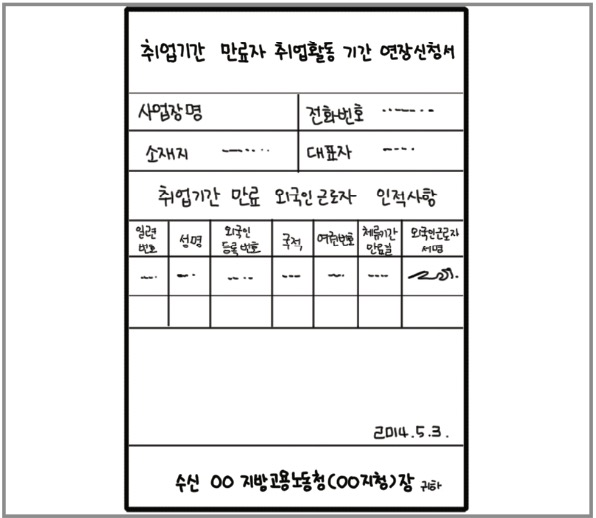 취업기간 만료자 취업활동 기간 연장신청서
사업장명 전화번호
소재지 대표자
취업기간 만료 외국인 근로자 인적사항
일련번호 성명 외국인등록번호 국적 여권번호 체류기간만료일 외국인근로자서명
2014.5.3.
수신 OO 지방고용노동청(OO지청)장 귀하